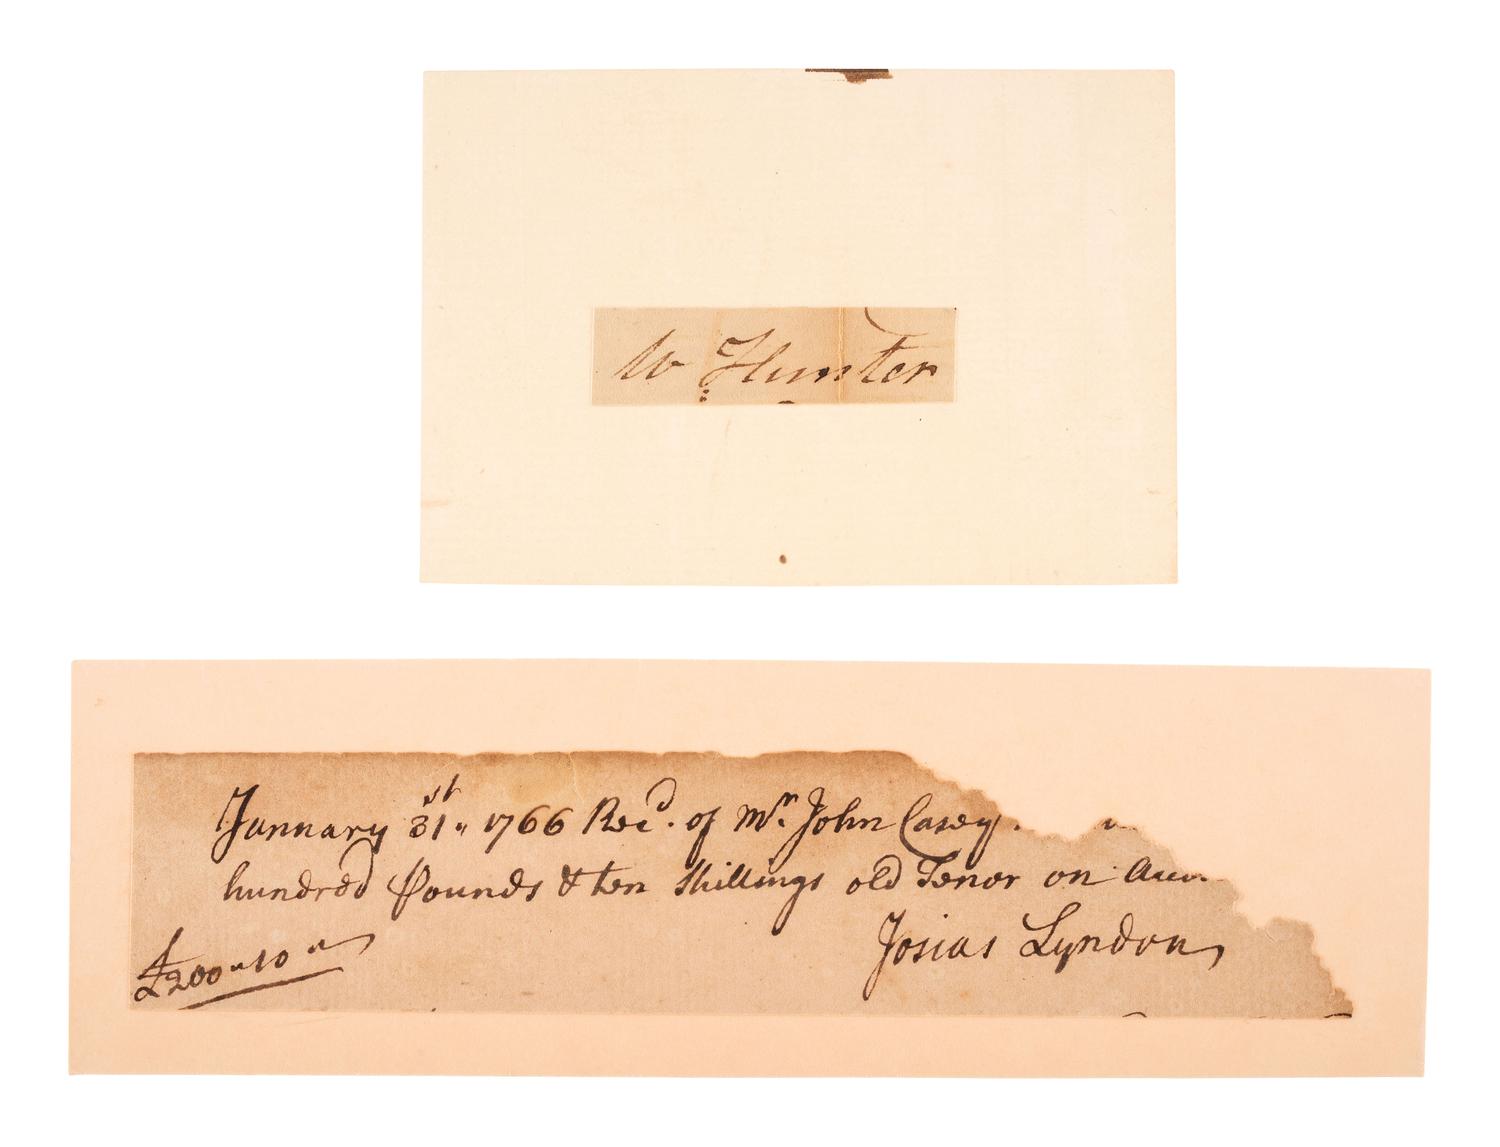 W Hunter
January 31st 1766 Recd. of Mr. John Casey
hundred Pounds & ten Shillings old Tenor on
Josias Lyndon
£200 " 10 "